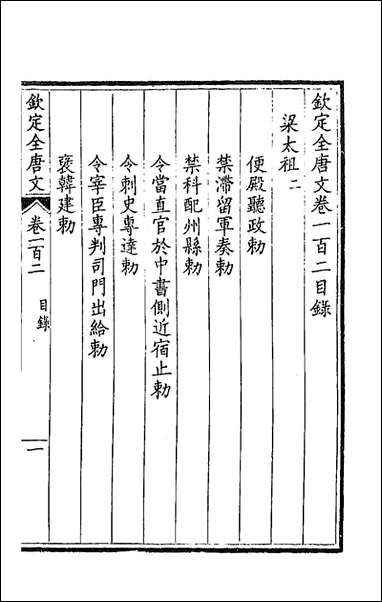 欽定全唐文卷一百二目錄
梁太祖二
便殿聽政敕
禁滯留軍奏敕
禁科配州縣敕
令當直官於中書側近宿止敕
令刺史專達敕
令宰臣專判司門出給敕
褒韓建敕
欽定全唐文 卷一百二 目錄 一